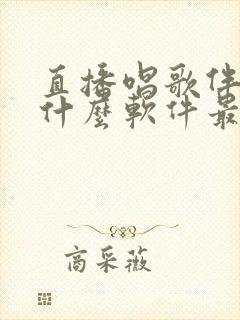 直播唱歌伴
什麼軟件最
商采薇